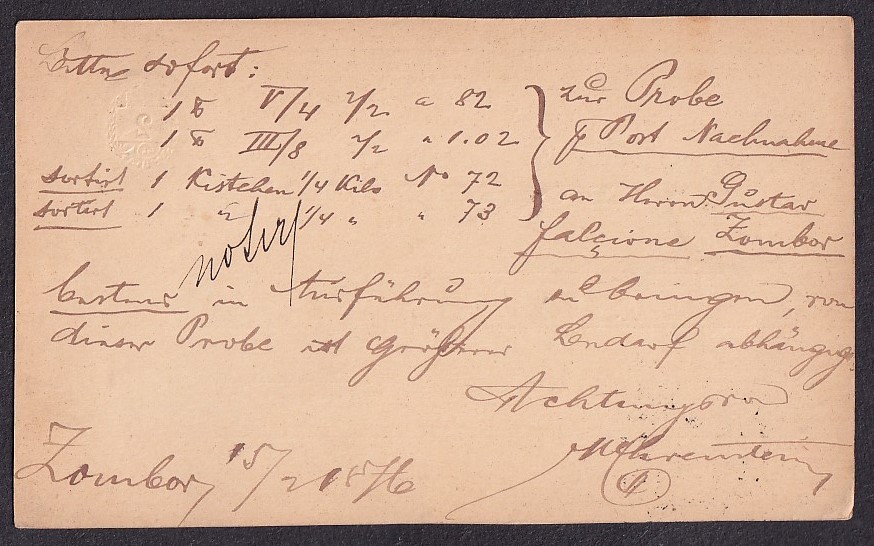 Bitte sofort:
1 ℔ V/4 7/2 a 82 zur Probe
1 ℔ III/8 7/2 " 1.02 p Post Nachnahme
sortirt 1 Kistchen 1/4 Kilo No 72 an Herrn Gustav
sortirt 1 " 1/4 " " 73 Falcione Zombor
notirt
bestens in Ausführung zu bringen, von
dieser Probe ist größerer Bedarf abhängig
Achtungsvoll
Zombor, 15/2 1876